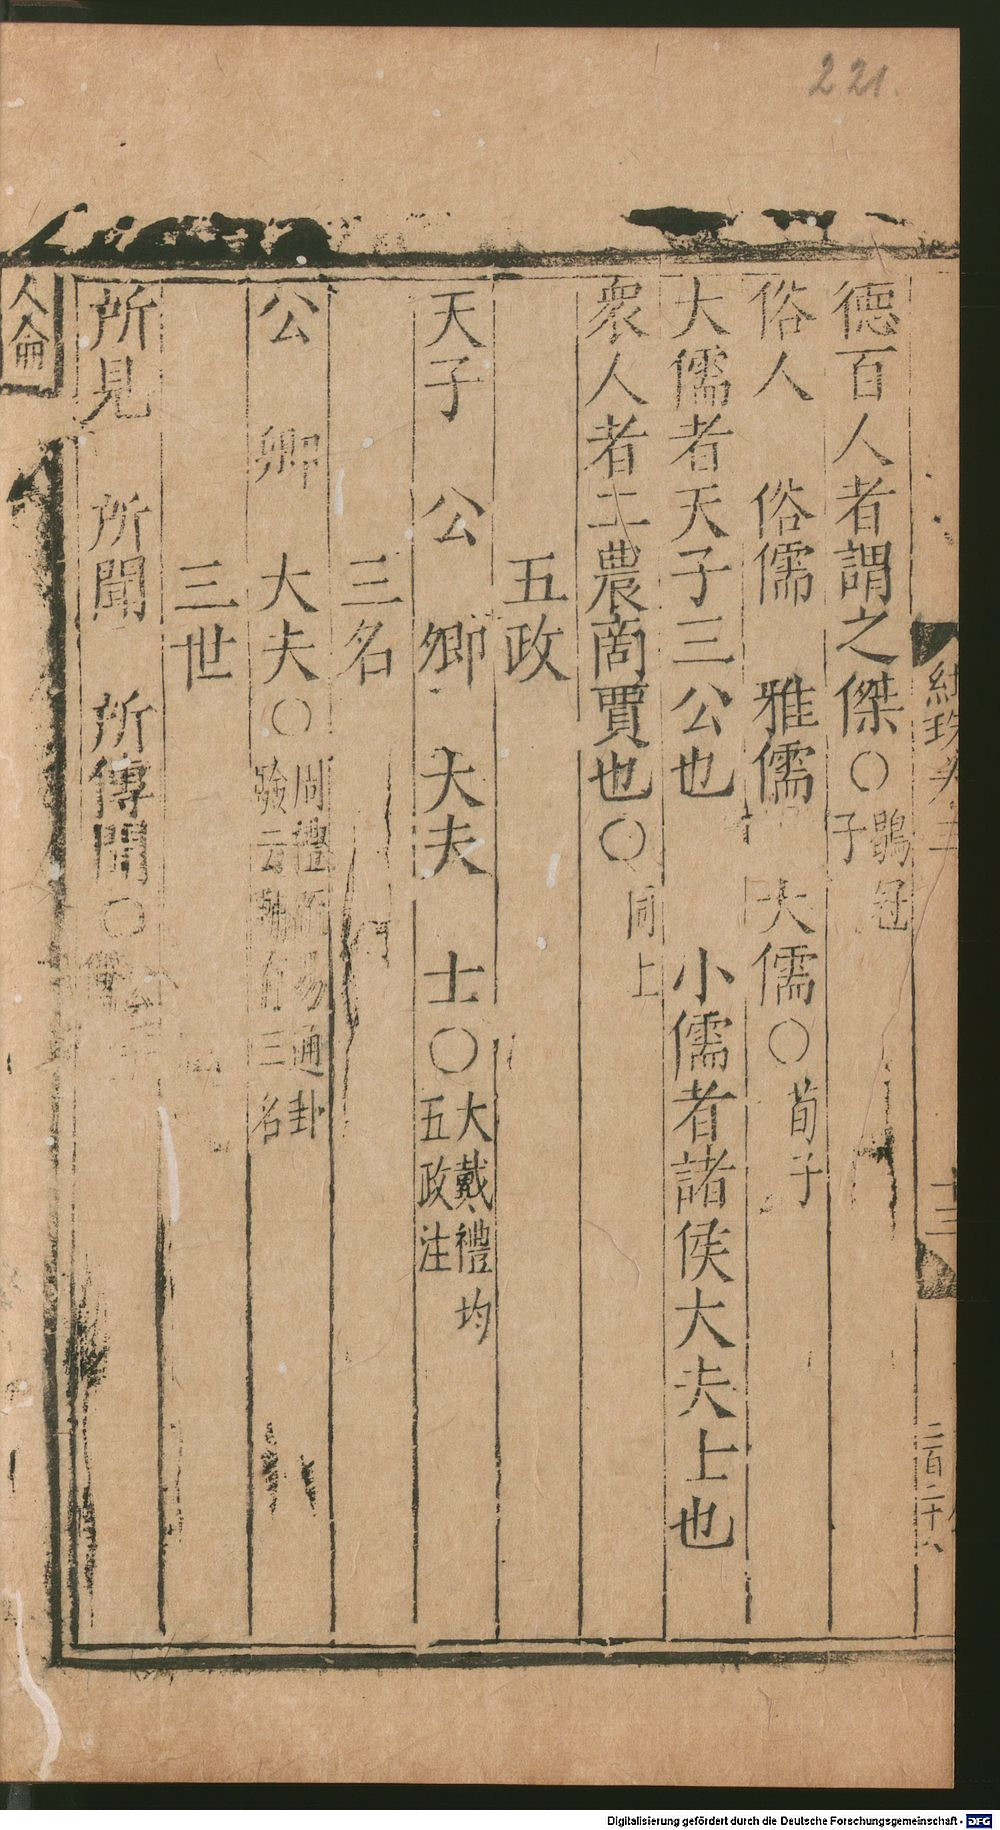 221.
德百人者謂之傑○鶡冠子
俗人 俗儒 雅儒 大儒○荀子
大儒者天子三公也 小儒者諸侯大夫士也
衆人者工農商賈也○同上
五政
天子 公 卿 大夫 士○大戴禮均五政注
三名
公 卿 大夫○周禮疏易通卦驗云朝有三名
三世
所見 所聞 所傳聞○
人倫
十三
二百二十八
Digitalisierung gefördert durch die Deutsche Forschungsgemeinschaft - DFG